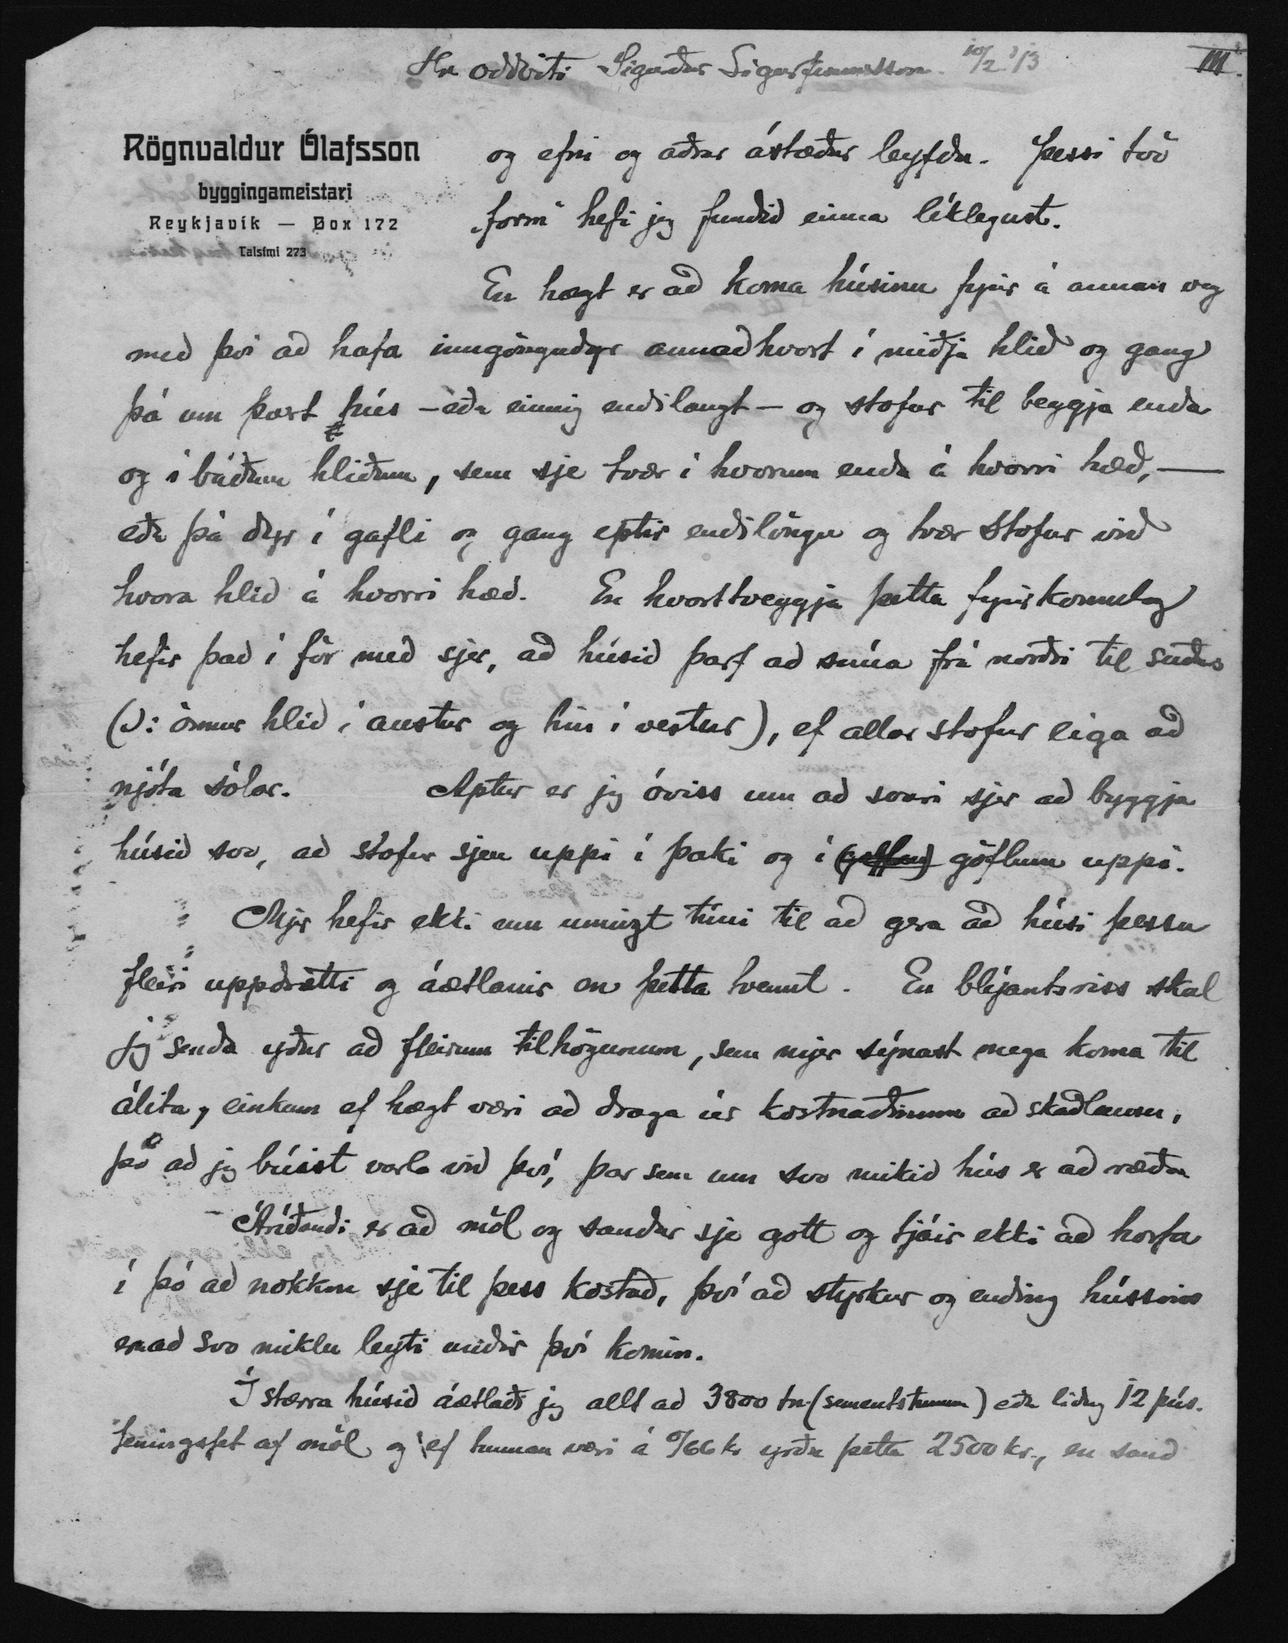 Hr. oddviti Sigurður Sigurfinnsson. 10/2 '13
III.
Rögnvaldur Ólafsson
byggingameistari
Reykjavík — Box 172
Talsími 273
og efni og aðrar ástæður leyfðu. Þessi tvö
„form“ hefi jeg fundið einna líklegust.
En hægt er að koma húsinu fyrir á annan veg
með því að hafa inngöngudyr annaðhvort í miðja hlið og gang
þá um þvert hús – eða einnig endilangt – og stofur til beggja enda
og í báðum hliðum, sem sje tvær í hvorum enda á hvorri hæð, —
eða þá dyr í gafli og gang eptir endilöngu og tvær stofur við
hvora hlið á hvorri hæð. En hvorttveggja þetta fyrirkomulag
hefir það í för með sjer, að húsið þarf að snúa frá norðri til suðurs
(ɔ: önnur hlið í austur og hin í vestur), ef allar stofur eiga að
njóta sólar. Aptur er jeg óviss um að svari sjer að byggja
húsið svo, að stofur sjeu uppi í þaki og í göflum uppi.
Mjer hefir ekki enn unnizt tími til að gera að húsi þessu
fleiri uppdrætti og áætlanir en þetta hvennt. En blýantsriss skal
jeg senda yður að fleirum tilhögunum, sem mjer sýnast mega koma til
álita, einkum ef hægt væri að draga úr kostnaðinum að skaðlausu,
þó að jeg búist varla við því, þar sem um svo mikið hús er að ræða
Áríðandi er að möl og sandur sje gott og tjáir ekki að horfa
í þó að nokkru sje til þess kostað, því að styrkur og ending hússins
er að svo miklu leyti undir því komin.
Í stærra húsið áætlaði jeg allt að 3800 tn. (sementstunnu) eða liðug 12 þús.
teningsfet af möl og ef tunnan væri á 0/66 kr yrðu þetta 2500 kr., en sand